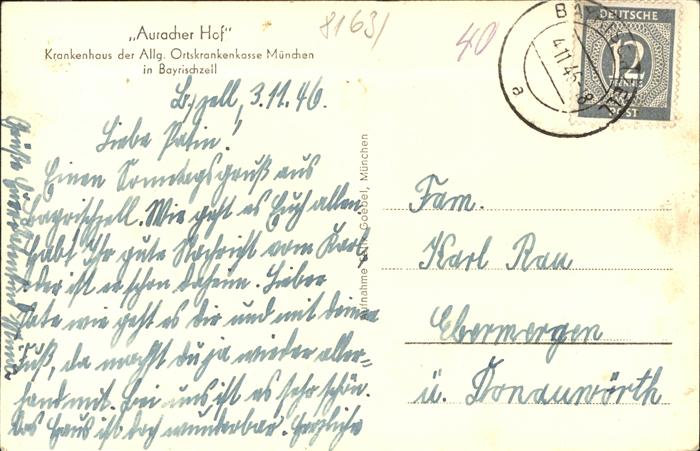 „Auracher Hof"
Krankenhaus der Allg. Ortskrankenkasse München
in Bayrischzell
8163/
40
DEUTSCHE
12
POST
4.11.46-8
a
B.zell, 3.11.46.
Liebe Patin!
Einen Sonntagsgruß aus
Bayrischzell. Wie geht es Euch allen
habt Ihr gute Nachricht vom Karl
oder ist er schon daheim. Lieber
Pate wie geht es dir und mit deinem
Fuß, da machst du ja wieder aller-
hand mit. Bei uns ist es sehr schön.
Das Haus ist doch wunderbar. Herzliche
Grüße
Goebel, München
Fam.
Karl Rau
Ebermergen
ü. Donauwörth